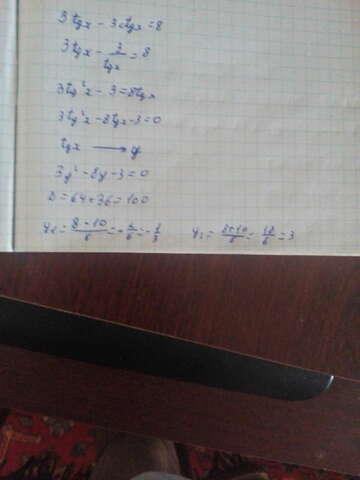 3tgx - 3ctgx = 8
3tgx - 3/tgx = 8
3tg²x - 3 = 8tgx
3tg²x - 8tgx - 3 = 0
tgx ⟶ y
3y² - 8y - 3 = 0
D = 64 + 36 = 100
y₁ = (8 - 10)/6 = -2/6 = -1/3 y₂ = (8+10)/6 = 18/6 = 3